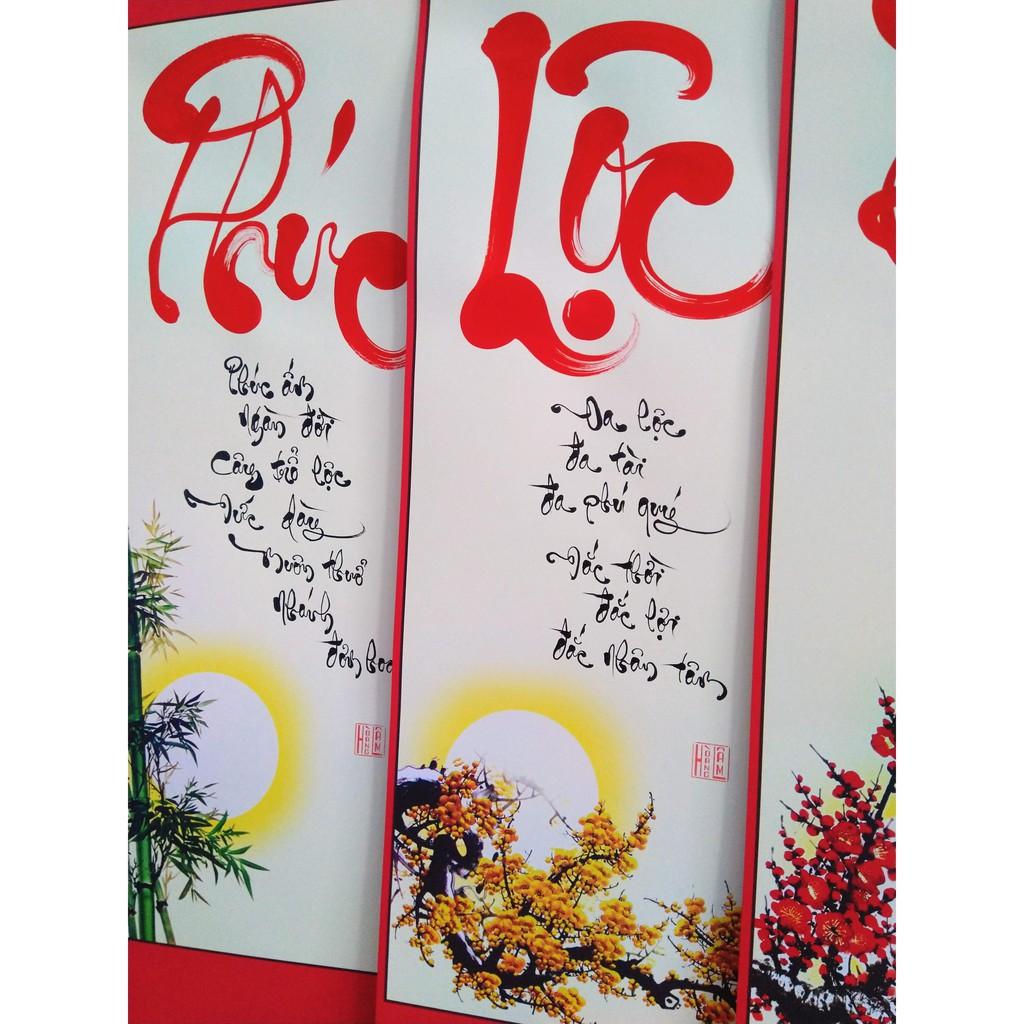 Phúc
Phúc ấm
ngàn đời
Cây trổ lộc
Đức dày
muôn thuở
nhánh
đơm hoa
HOÀNG LÂM
Lộc
Đa lộc
đa tài
đa phú quý
Đắc thời
đắc lợi
đắc nhân tâm
HOÀNG LÂM